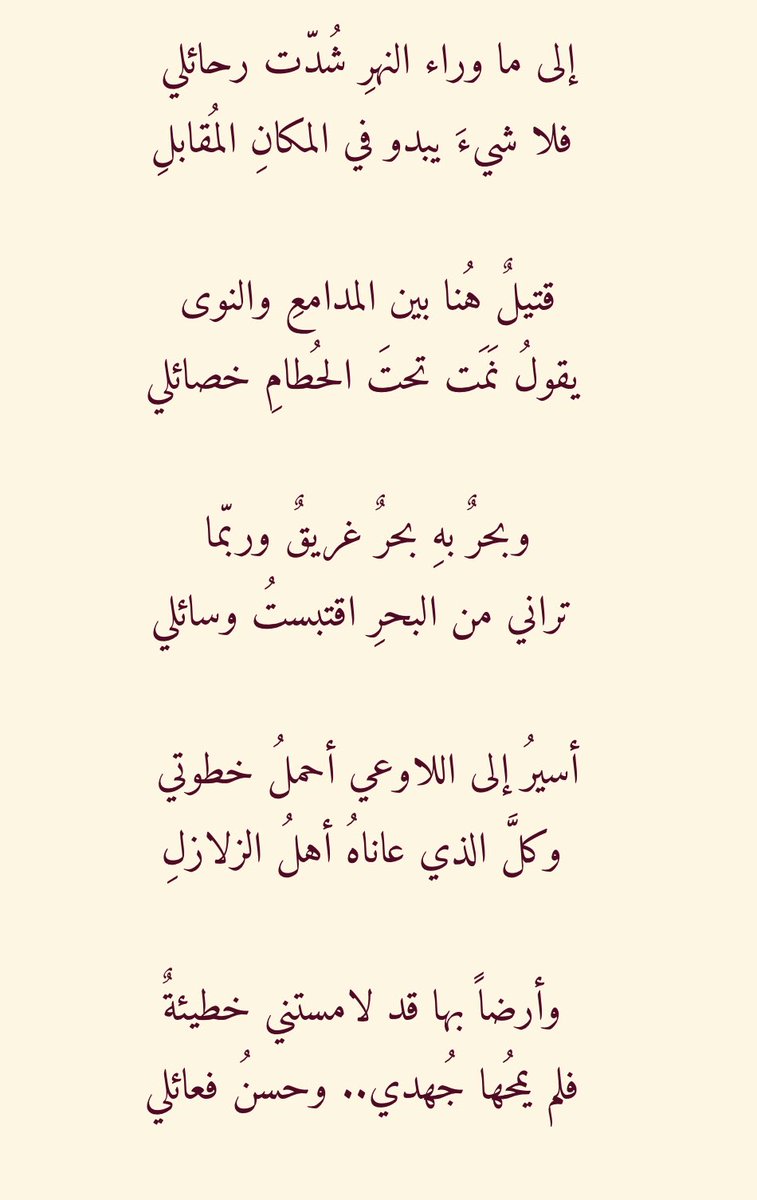 إلى ما وراء النهرِ شُدّت رحائلي
فلا شيءَ يبدو في المكانِ المُقابلِ
قتيلٌ هُنا بين المدامعِ والنوى
يقولُ نَمَت تحتَ الحُطامِ خصائلي
وبحرٌ بهِ بحرٌ غريقٌ وربّما
تراني من البحرِ اقتبستُ وسائلي
أسيرُ إلى اللاوعي أحملُ خطوتي
وكلَّ الذي عاناهُ أهلُ الزلازلِ
وأرضاً بها قد لامستني خطيئةٌ
فلم يمحُها جُهدي.. وحسنُ فعائلي